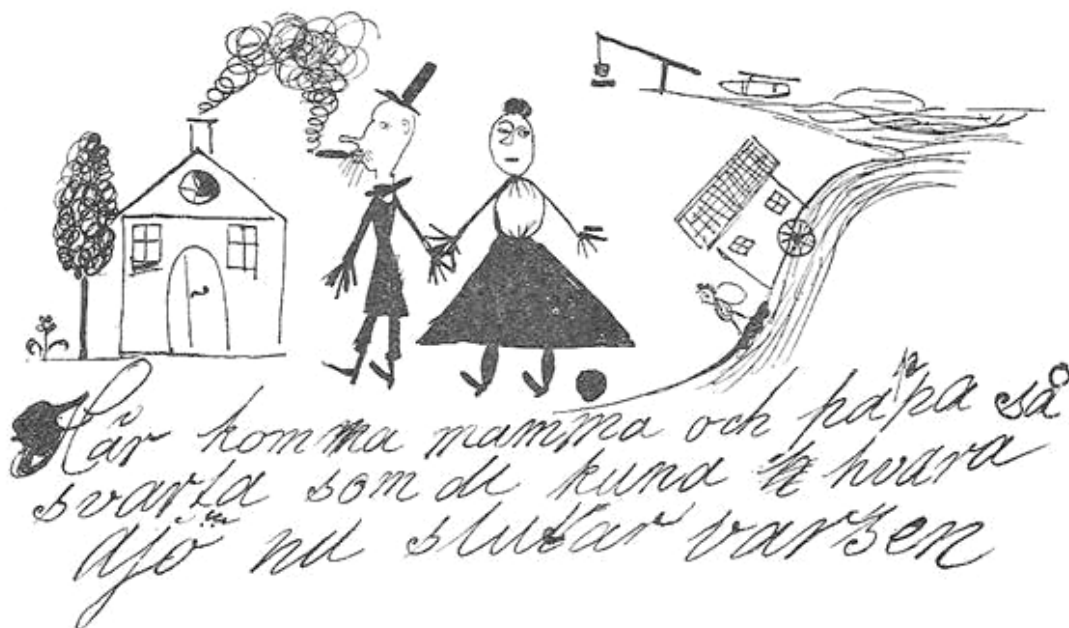 Här komma mamma och pa'pa så
svarta som de kuna hvara
ajö nu slutar varsen